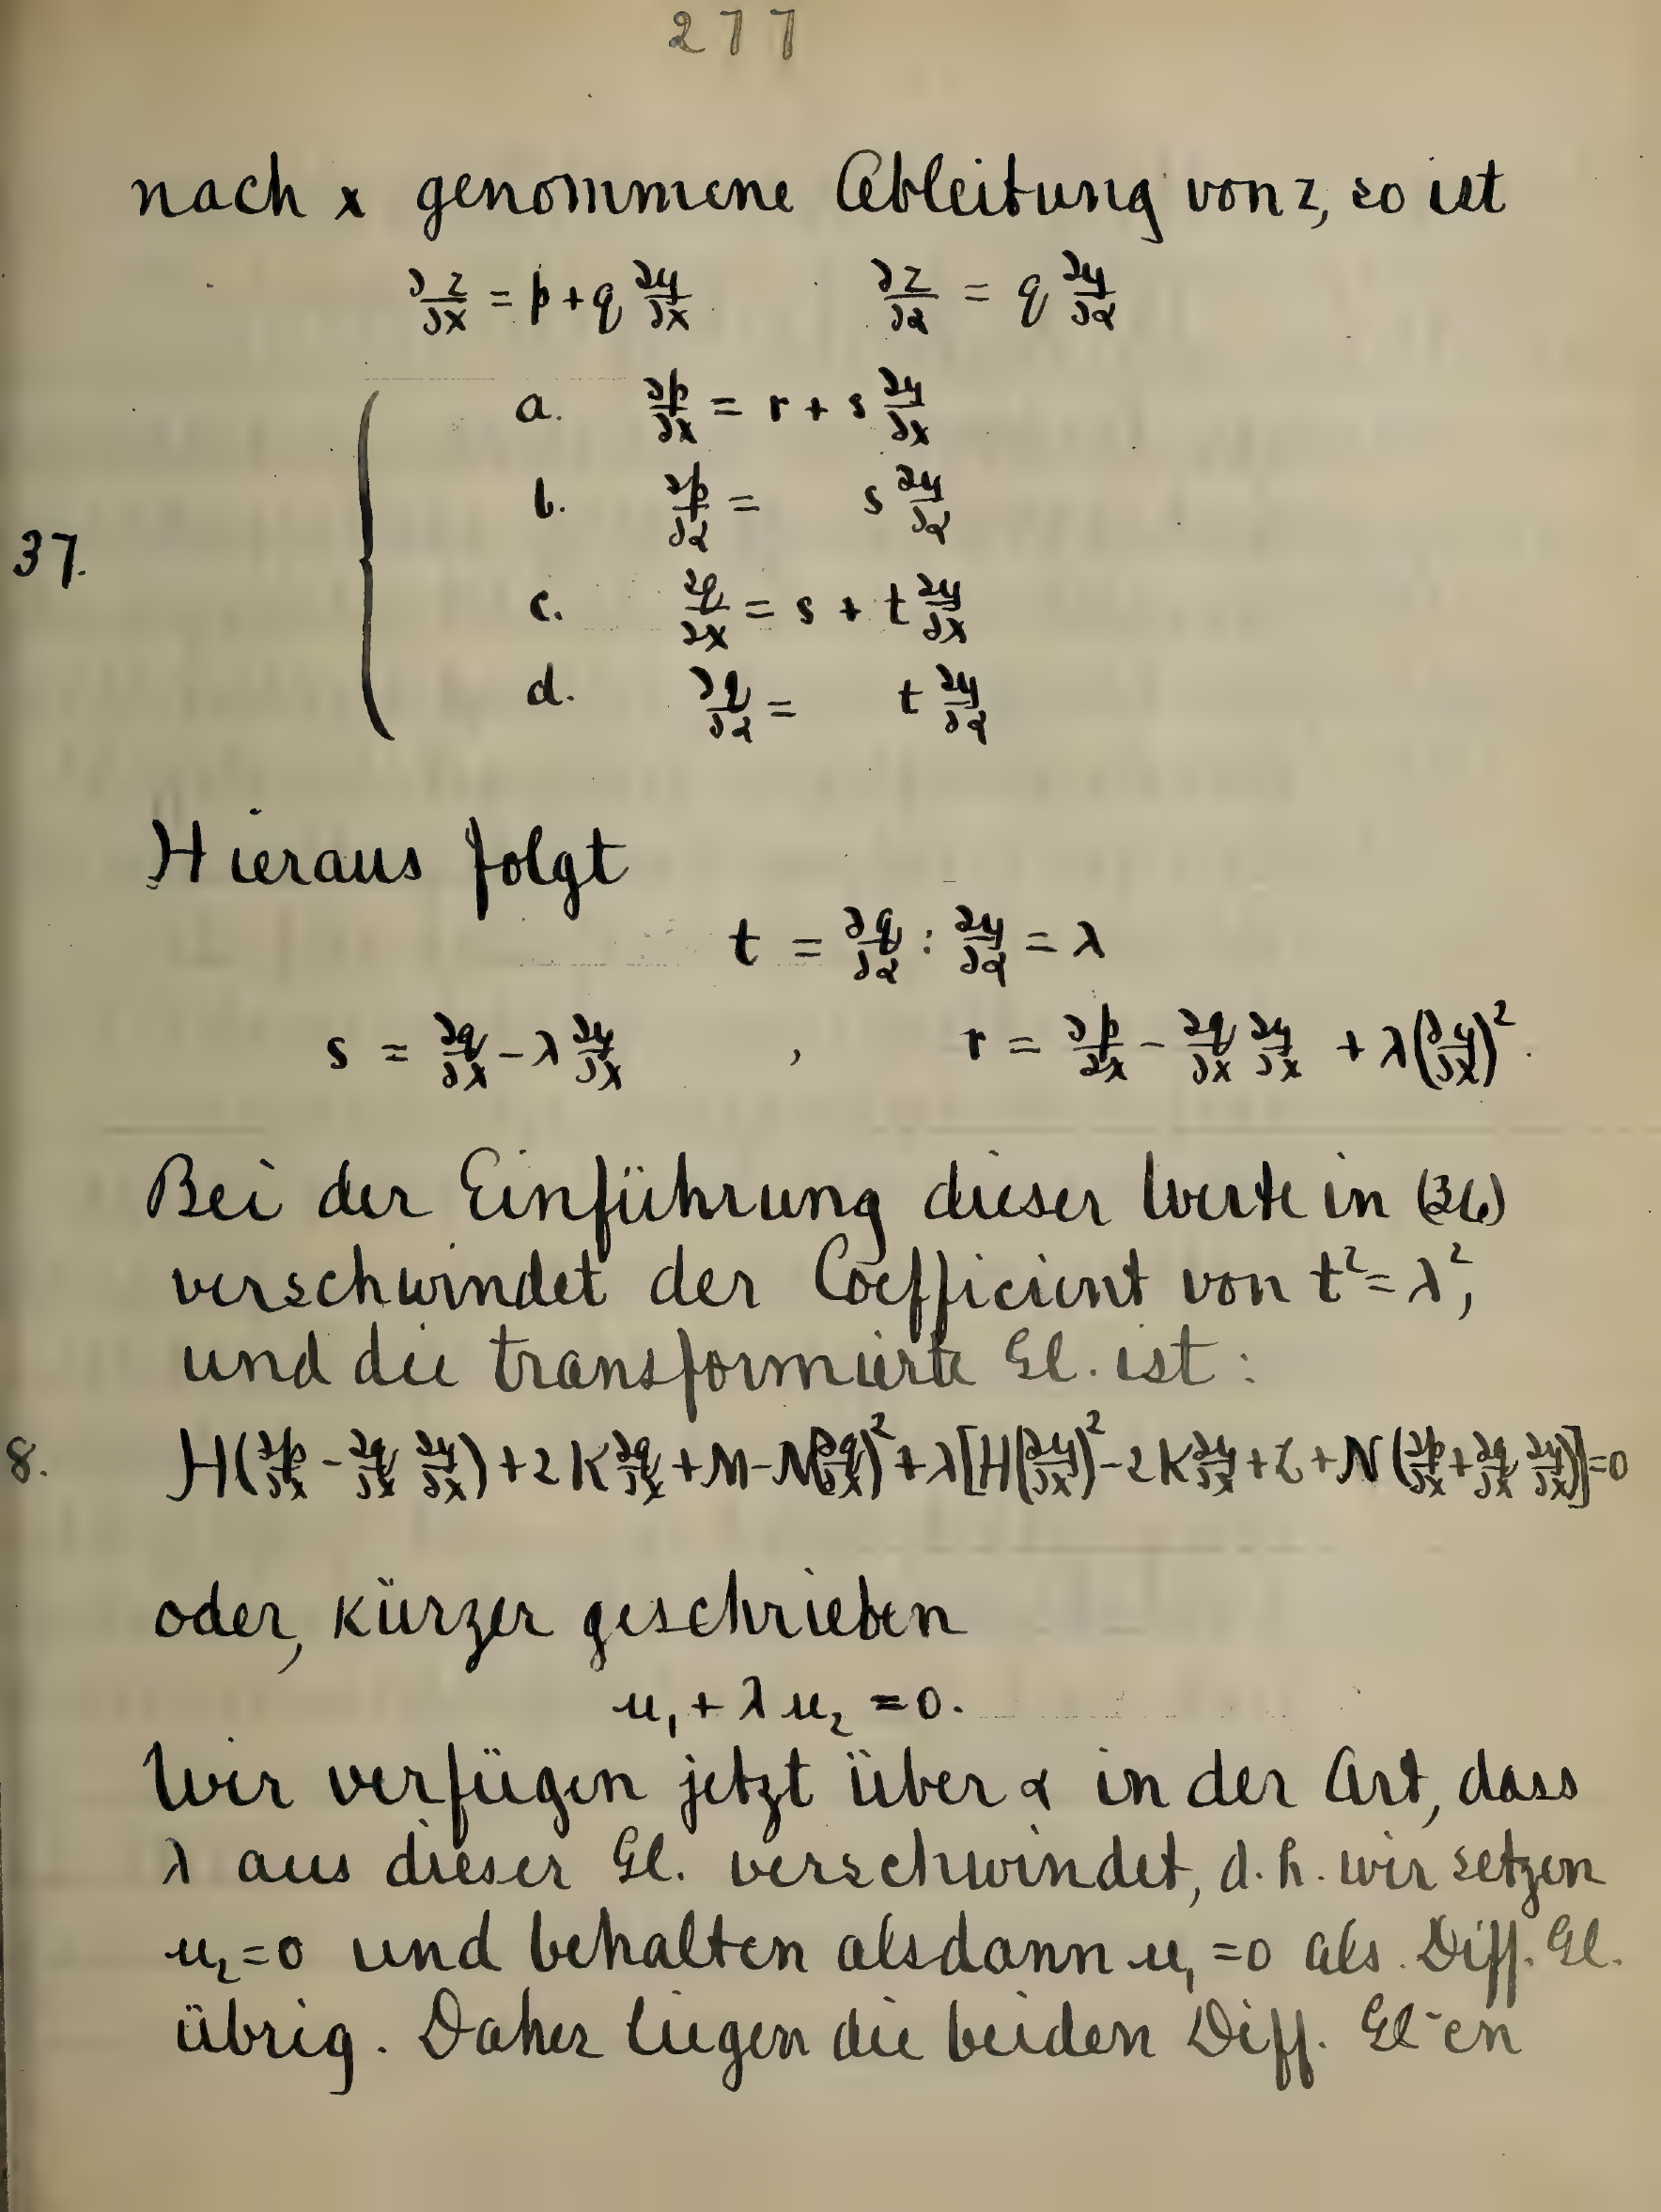 277
nach x genommene Ableitung von z, so ist
∂z/∂x = p + q ∂y/∂x ∂z/∂α = q ∂y/∂α
a. ∂p/∂x = r + s ∂y/∂x
b. ∂p/∂α = s ∂y/∂α
37.
c. ∂q/∂x = s + t ∂y/∂x
d. ∂q/∂α = t ∂y/∂α
Hieraus folgt
t = ∂q/∂α : ∂y/∂α = λ
s = ∂q/∂x - λ ∂y/∂x , r = ∂p/∂x - ∂q/∂x ∂y/∂x + λ(∂y/∂x)².
Bei der Einführung dieser Werte in (36)
verschwindet der Coefficient von t² = λ²,
und die transformierte Gl. ist:
8. H(∂p/∂x - ∂q/∂x ∂y/∂x) + 2K ∂q/∂x + M - N(∂q/∂x)² + λ[H(∂y/∂x)² - 2K ∂y/∂x + L + N(∂p/∂x + ∂q/∂x ∂y/∂x)] = 0
oder, kürzer geschrieben
u₁ + λ u₂ = 0.
Wir verfügen jetzt über α in der Art, dass
λ aus dieser Gl. verschwindet, d.h. wir setzen
u₂ = 0 und behalten alsdann u₁ = 0 als Diff. Gl.
übrig. Daher liegen die beiden Diff. Gl-en